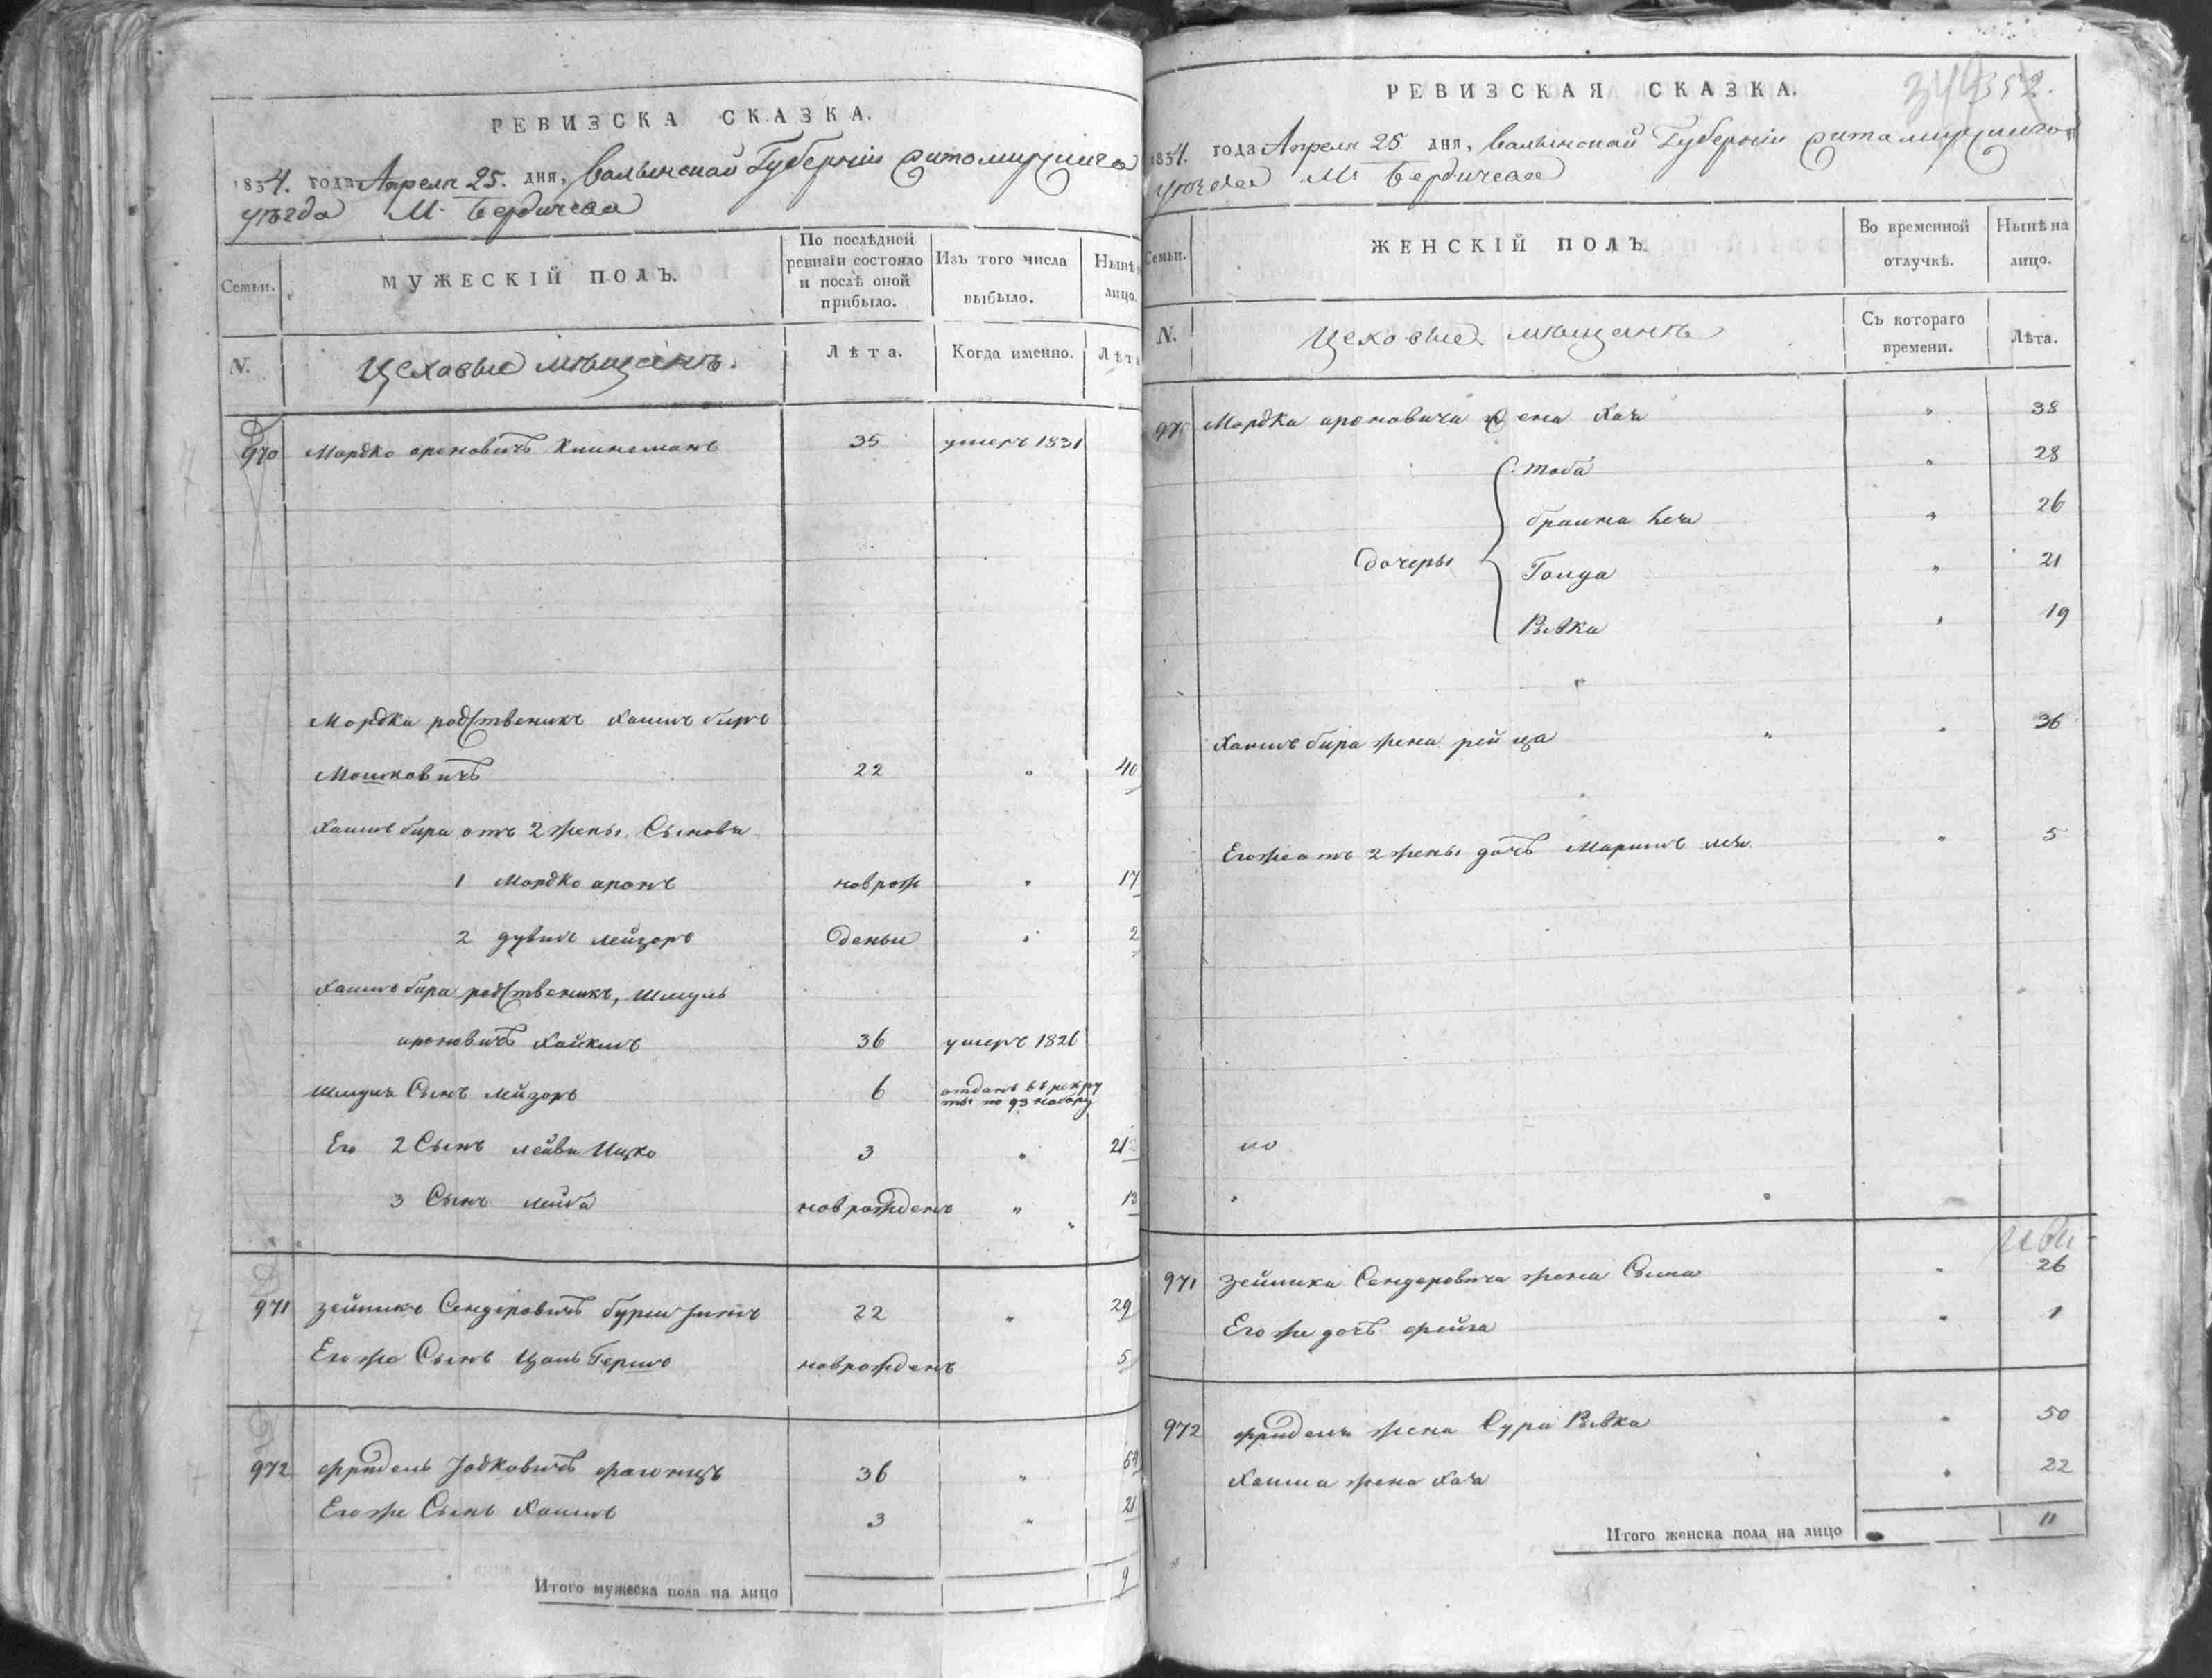 РЕВИЗСКА СКАЗКА.
1834. года Апреля 25. дня, Волынской Губерніи Житомирскаго
уѣзда М. Бердичева
Семьи.
МУЖЕСКІЙ ПОЛЪ.
По послѣдней ревизіи состояло и послѣ оной прибыло.
Изъ того числа выбыло.
Нынѣ
лицо.
N.
Цеховые мѣщанъ.
Лѣта.
Когда именно.
Лѣт
970 Мордко ароновичъ 35 умеръ 1831
Мордка родственикъ Хаимъ биръ
Мошковичъ 22 " 40
Хаимъ бира отъ 2 жены Сыновья
1 Мордко аронъ новрож " 17
2 дувидъ лейзоръ денъи " 2
Хаимъ бира родственикъ, Шмуль
ароновичъ 36 умеръ 1826
Шмуля Сынъ лейзоръ 6 отданъ въ рекру
ты по 93 набору
Его 2 Сынъ лейви Ицко 3 " 21
3 Сынъ лейба новрожденъ " 13
971 зейликъ Сендеровичъ 22 " 29
Его же Сынъ Гершъ новрожденъ 5
972 фридель Іоськовичъ 36 " 54
Его же Сынъ Хаимъ 3 " 21
Итого мужеска пола на лицо 9
РЕВИЗСКАЯ СКАЗКА.
344 352.
1834. года Апреля 25 дня, Волынской Губерніи Житомирскаго
уѣзда М. Бердичева
Семьи.
ЖЕНСКІЙ ПОЛЪ.
Во временной отлучкѣ.
Нынѣ на лицо.
N.
Цеховые мѣщанъ
Съ котораго времени.
Лѣта.
970 Мордка ароновича жена Хая " 38
тоба " 28
браина " 26
дочеры Голда " 21
Ривка " 19
Хаимъ бира жена рейза " 36
Его же отъ 2 жены дочь Маримъ лея " 5
971 зейлика Сендеровича жена " 26
Его же дочь фейга " 1
972 фриделя жена Сура Ривка " 50
Хаима жена Хая " 22
Итого женска пола на лицо 11